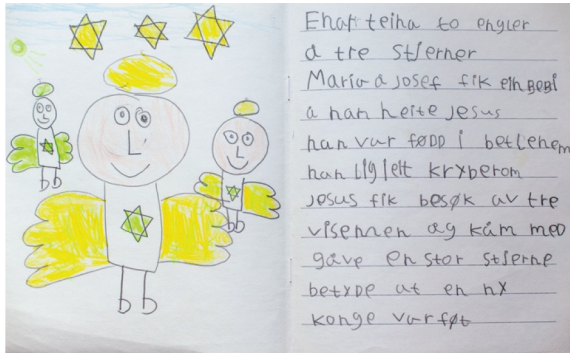 Ehar teiha to engler
a tre stjerner
Maria a Josef fik ein BEBI
a han heite Jesus
han var fØDD i betlehem
han lig i eit kryberom
Jesus fik besøk av tre
visemen ag kåm med
gave en stor stjerne
betyde at en ny
konge var føt